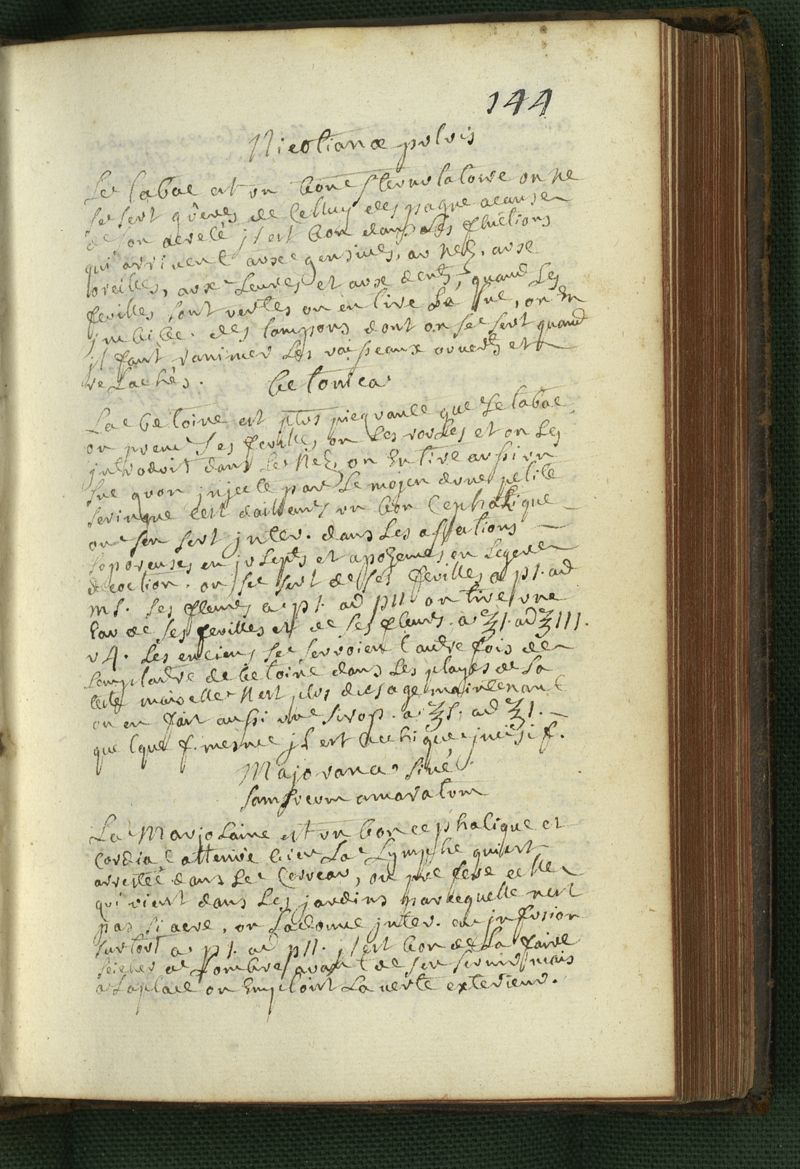 144
Nicotianæ pulvis
Le tabac est un bon sternutatoire on ne
se sert guères de celluy despagne acause
de son acreté jl est bon dans les fluctions
qui arrivent aux gensives, au nez, aux
oreilles, aux leures et aux dents, quand les
feuilles sont vertes on en tire le suc, on en
jmbibe des tampons dont on se sert quand
jl faut ranimer les vaisseaux ouverts et
relachés.
betonica
La betoine est plus piequante que le tabac
on prend ses feuilles on les roules et on les
jntroduit dans le nez, on en tire aussi un
suc quon jnjecte par le moien dune petite
seringue cest dailleurs un bon cephalique
on sen sert jnter. dans les affations
soporeuses en juleps et apozemes en legere
decoction. on se sert de ses feuilles a p1. ad
ms. ses fleurs a p1. ad p11. on tire une
eau de ses feuilles et de ses fleurs. a ℥1. ad ℥111.
v4. les enciens se servoient autre fois de
lemplatre de betoine dans les playes de la
teste mais elle nest plus dusage maintenant
on en fait aussi une sirop. a ℥s. ad ℥1.
que lque f. mesme jl est bechique jncisif.
Majorana siué
samsucum amaratum
La Marjolaine est un bon cephalique et
cordial attenue bien la lymphe qui est
arrestée dans le cerveau, on prefere celle
qui vient dans les jardins parcequelle nest
pas si acre, on la donne jnter. en jnfusion
surtout a p1. ad p11. jl est bon de la faire
seicher a lombre avant de sen servir mais
a la place on emploit la verte exterieur.